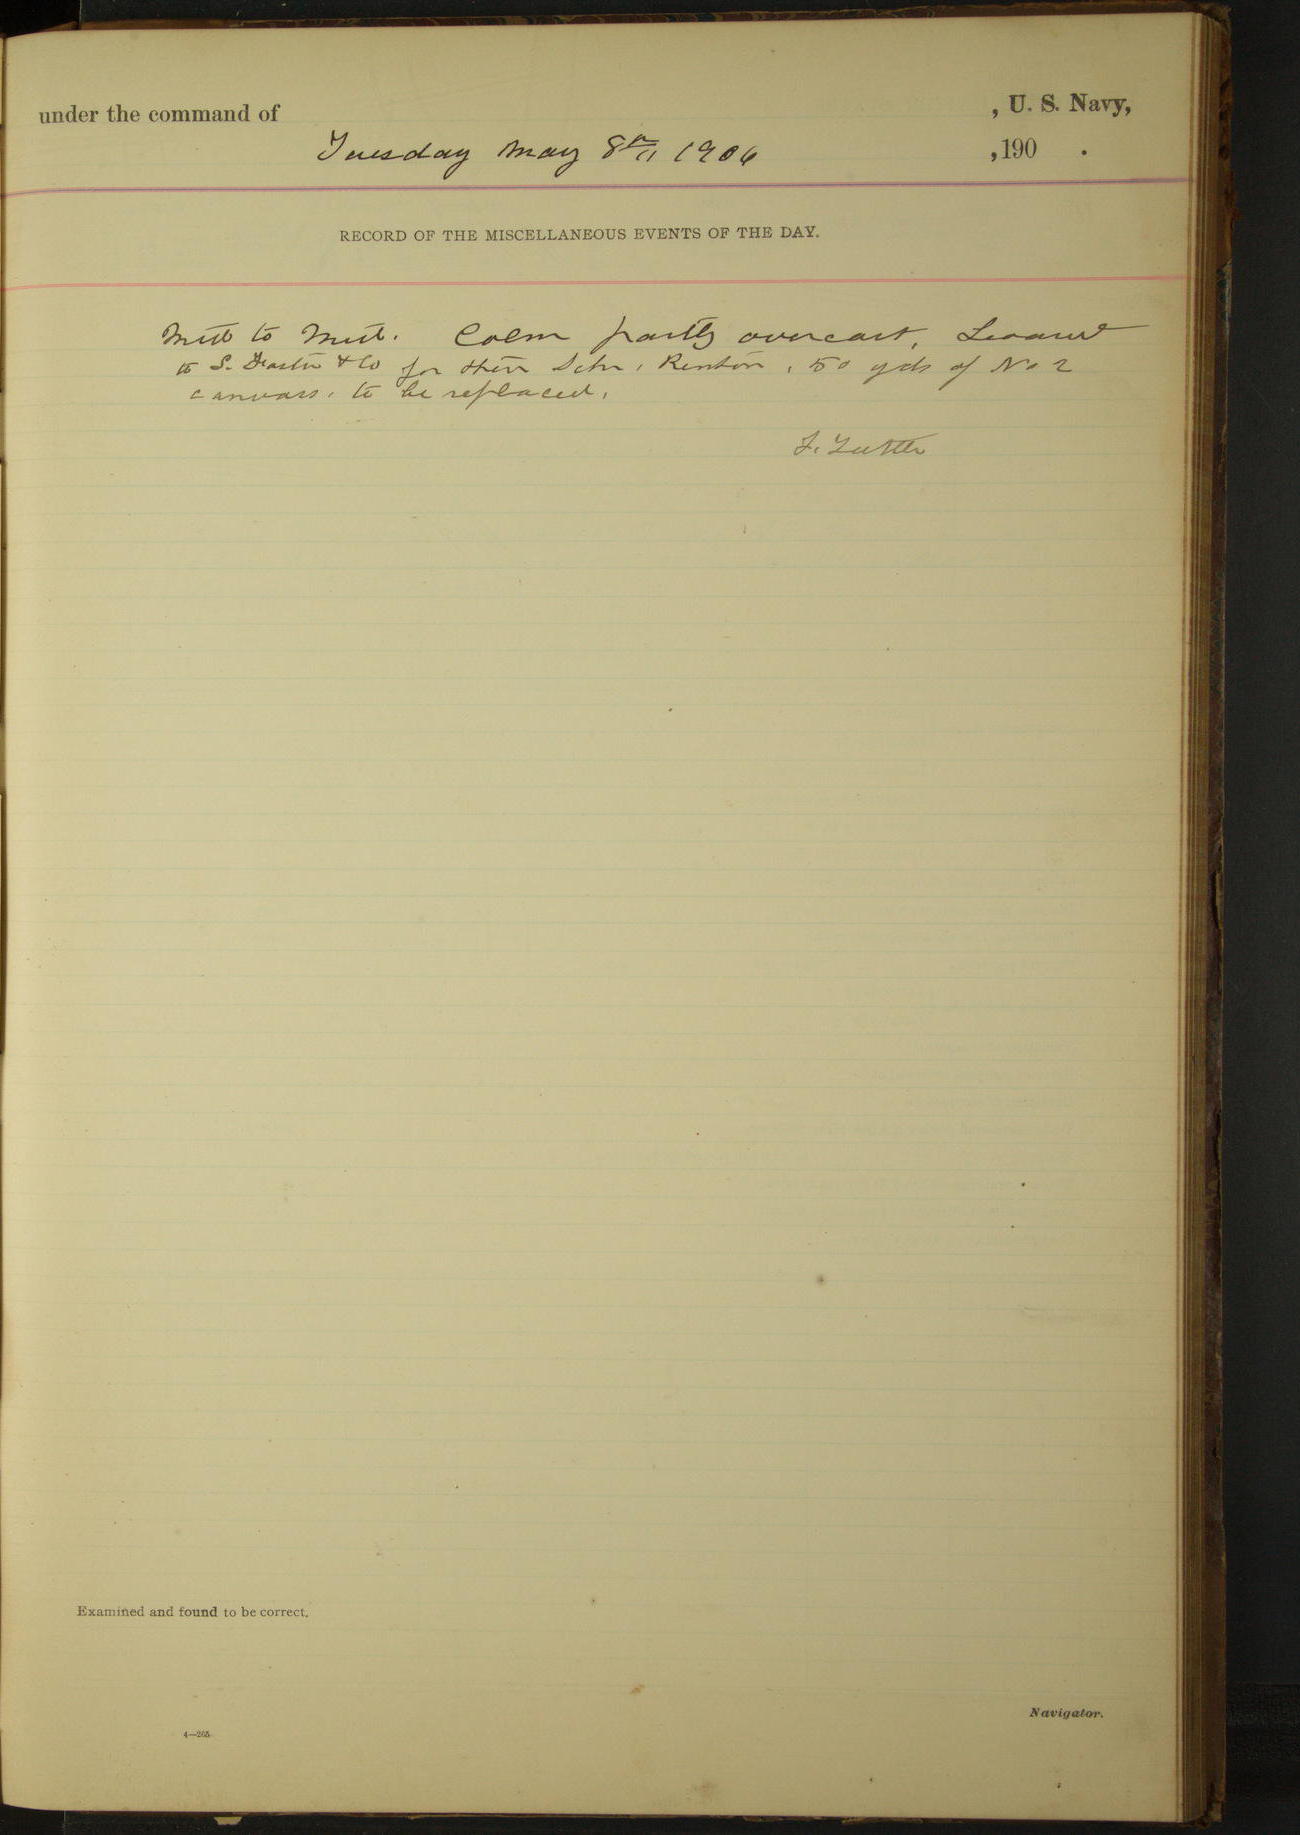 under the command of , U. S. Navy,
Tuesday May 8th 1906 , 190 .
RECORD OF THE MISCELLANEOUS EVENTS OF THE DAY.
Mid to Mid. Calm partly overcast. Loaned
to S. & Co for their Schr. Renton, 50 yds of No 2
canvass, to be replaced.
Examined and found to be correct.
Navigator.
4—265